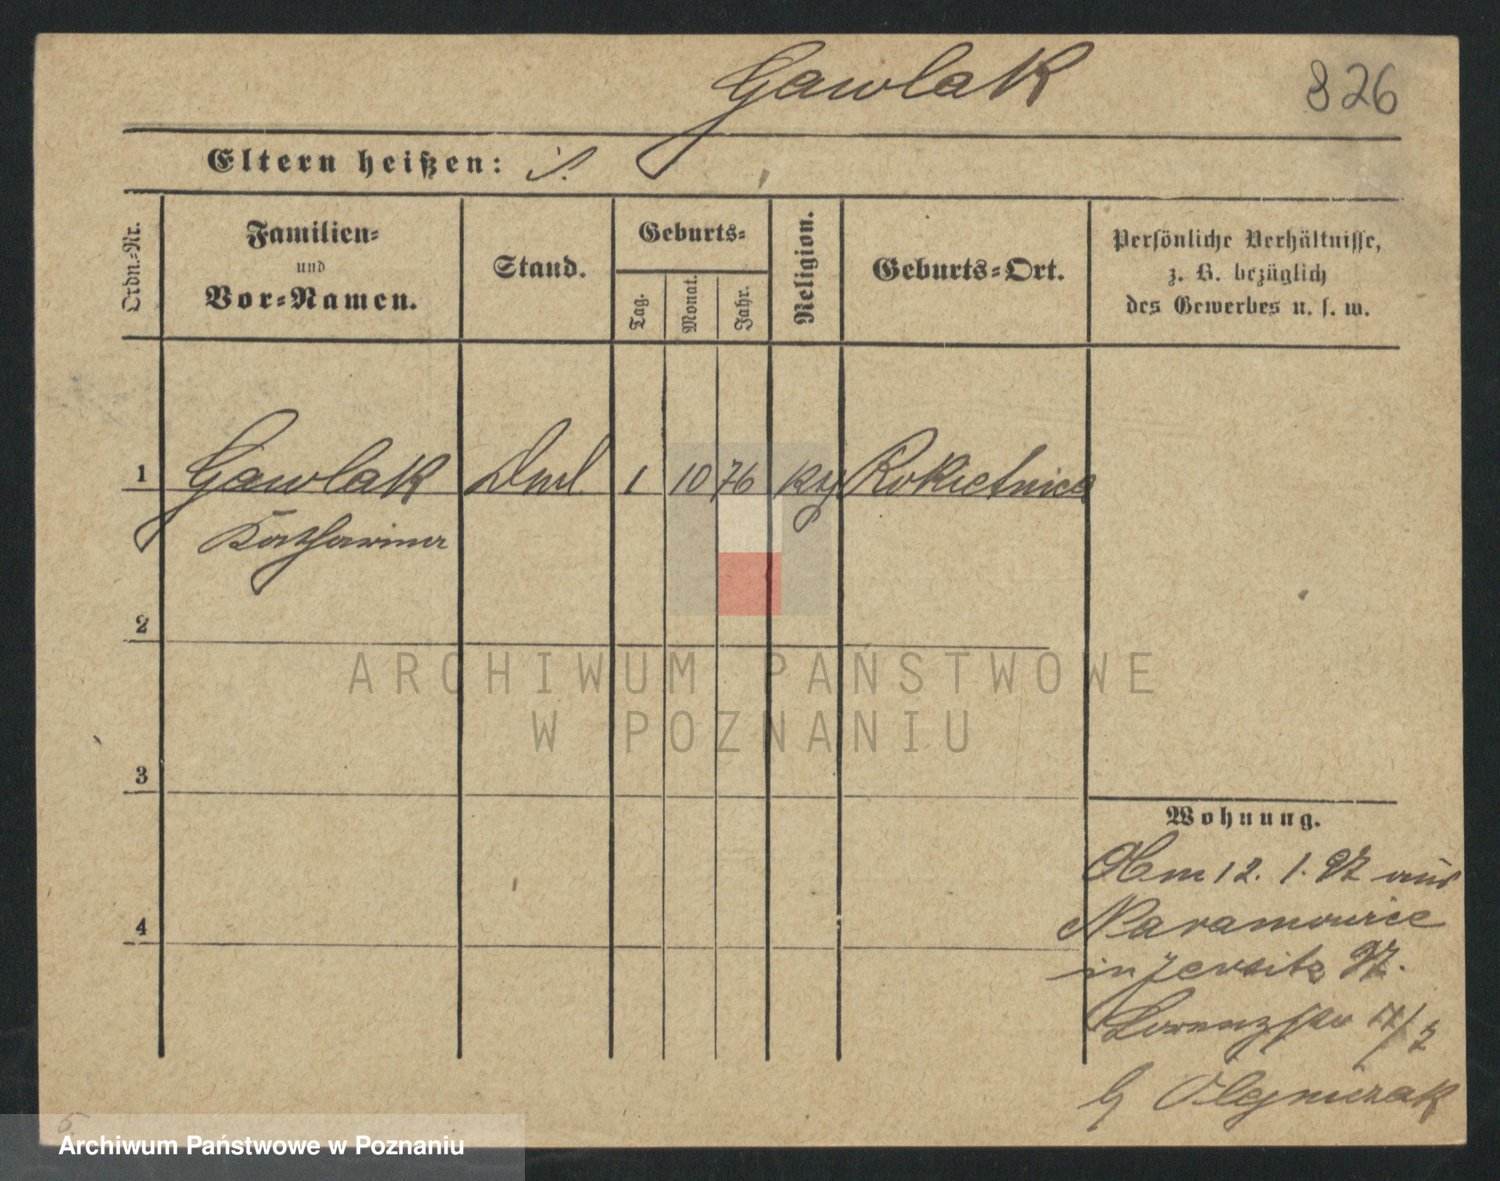 Gawlak
826
Eltern heißen:
Ordn.-Nr.
Familien-
und
Vor-Namen.
Stand.
Geburts-
Tag.
Monat.
Jahr.
Religion.
Geburts-Ort.
Persönliche Verhältnisse,
z. B. bezüglich
des Gewerbes u. s. w.
1
Gawlak 1 10 76 Rokietnica
Katharina
2
3
4
ARCHIWUM PAŃSTWOWE
W POZNANIU
Wohnung.
12. 1. 97 aus
Naramowice
in Jersitz 97.
b/ Olejniczak
Archiwum Państwowe w Poznaniu